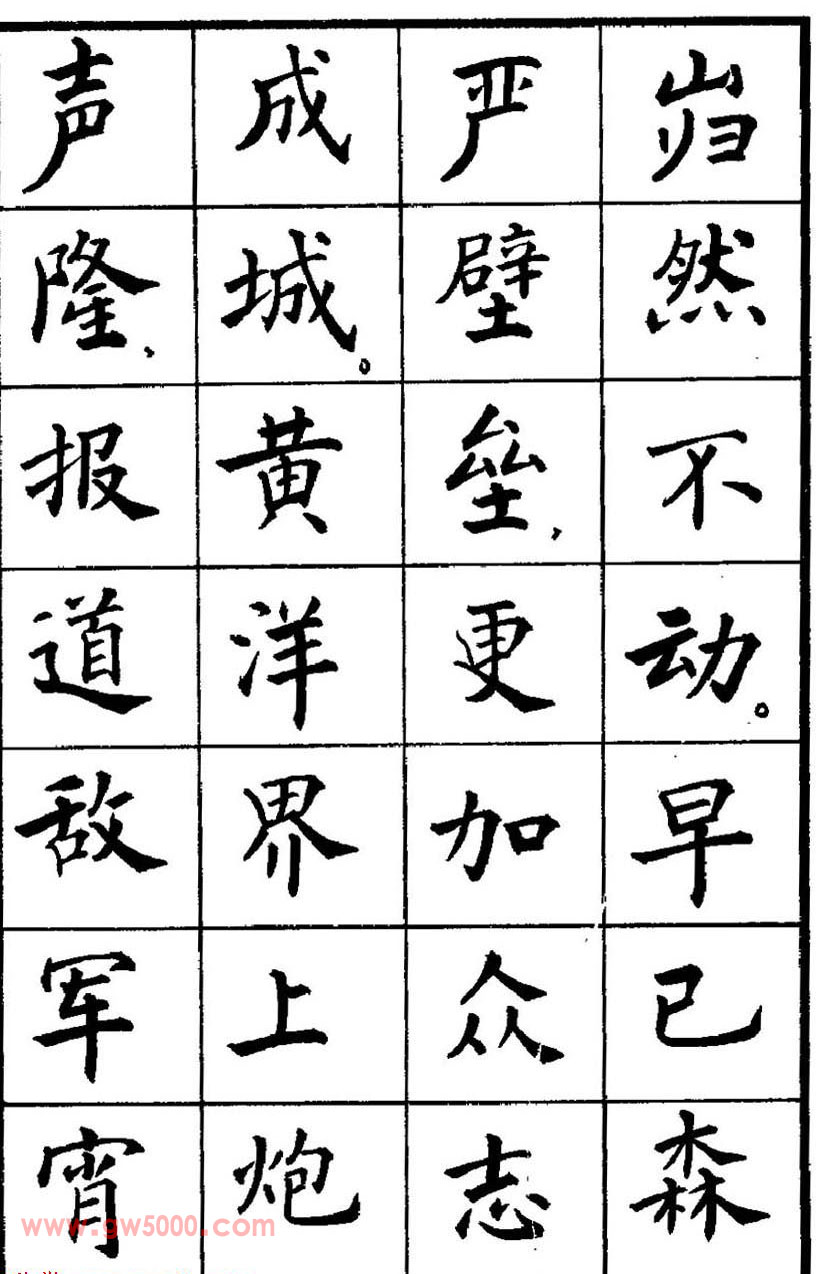 岿然不动。早已森
严壁垒,更加众志
成城。黄洋界上炮
声隆,报道敌军宵
www.gw5000.com